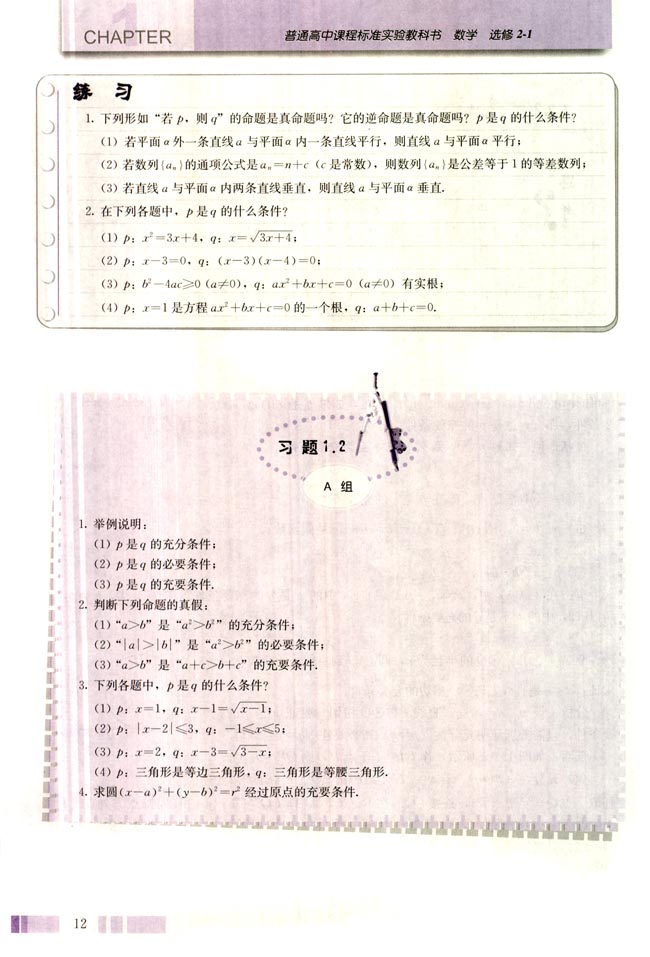 1
CHAPTER
普通高中课程标准实验教科书 数学 选修 2-1
练 习
1. 下列形如“若 p，则 q”的命题是真命题吗？它的逆命题是真命题吗？p 是 q 的什么条件？
(1) 若平面 α 外一条直线 a 与平面 α 内一条直线平行，则直线 a 与平面 α 平行；
(2) 若数列{aₙ}的通项公式是 aₙ=n+c（c 是常数），则数列{aₙ}是公差等于 1 的等差数列；
(3) 若直线 a 与平面 α 内两条直线垂直，则直线 a 与平面 α 垂直.
2. 在下列各题中，p 是 q 的什么条件？
(1) p：x²=3x+4，q：x=√(3x+4)；
(2) p：x-3=0，q：(x-3)(x-4)=0；
(3) p：b²-4ac≥0 (a≠0)，q：ax²+bx+c=0 (a≠0) 有实根；
(4) p：x=1 是方程 ax²+bx+c=0 的一个根，q：a+b+c=0.
习 题 1.2
A 组
1. 举例说明：
(1) p 是 q 的充分条件；
(2) p 是 q 的必要条件；
(3) p 是 q 的充要条件.
2. 判断下列命题的真假：
(1) “a>b” 是 “a²>b²” 的充分条件；
(2) “|a|>|b|” 是 “a²>b²” 的必要条件；
(3) “a>b” 是 “a+c>b+c” 的充要条件.
3. 下列各题中，p 是 q 的什么条件？
(1) p：x=1，q：x-1=√(x-1)；
(2) p：|x-2|≤3，q：-1≤x≤5；
(3) p：x=2，q：x-3=√(3-x)；
(4) p：三角形是等边三角形，q：三角形是等腰三角形.
4. 求圆(x-a)²+(y-b)²=r² 经过原点的充要条件.
12